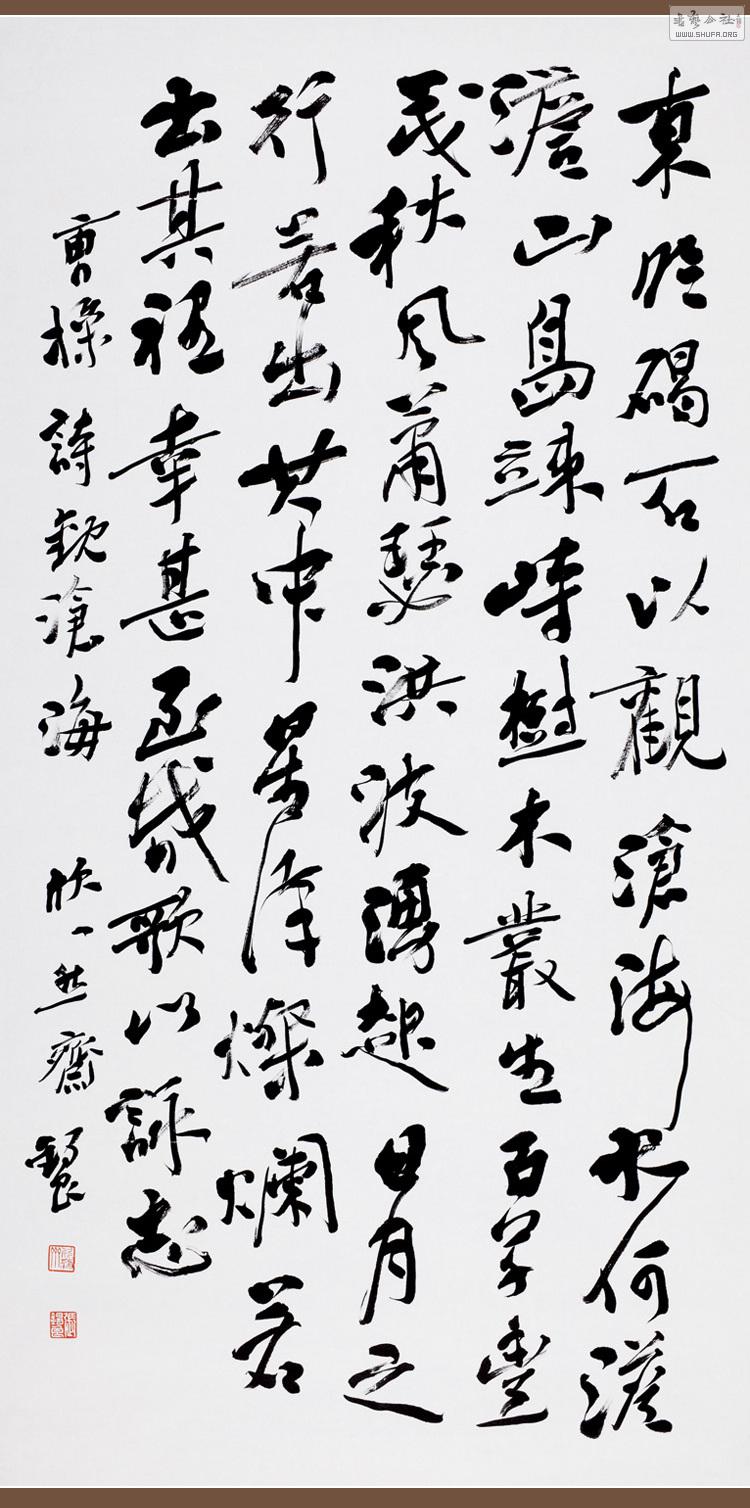 東臨碣石以觀滄海水何澹
澹山島竦峙樹木叢生百草豐
茂秋風蕭瑟洪波湧起日月之
行若出其中星漢燦爛若
出其裡幸甚至哉歌以詠志
曹操詩觀滄海 於一然齋
書藝公社
WWW.SHUFA.ORG